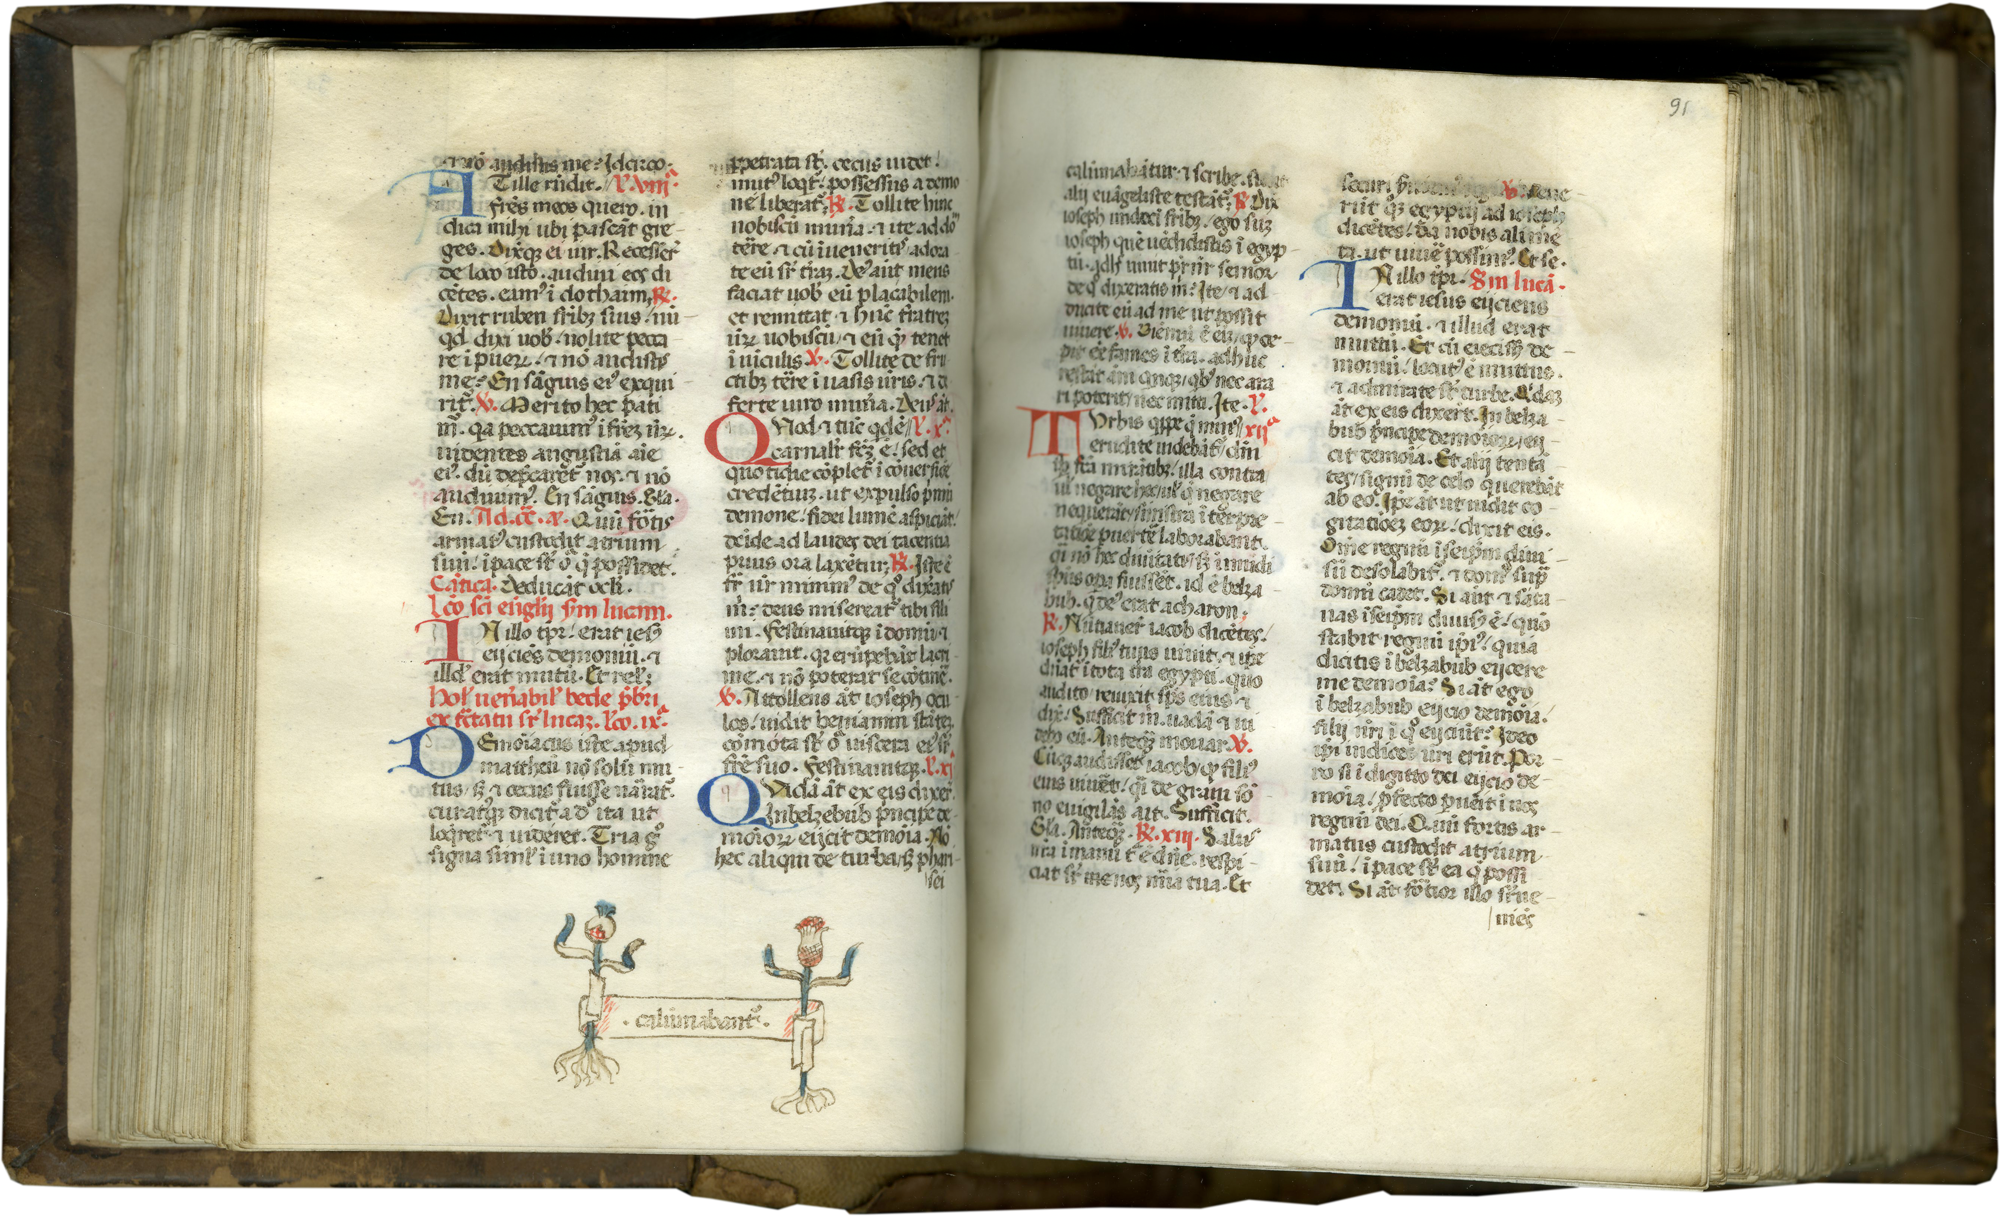 nõ audistis me? Idcirco.
Tille rñdit. V. viii.
A frẽs meos quero. in
dica mihi ubi pascãt gre
ges. Dixitqz ei uir. Recessert̃
de loco isto. audiui eos di
cẽtes. eam' ĩ dothaim. R.
Dixit ruben frĩbz suis. nũ
qd dixi uob. nolite pecca
re ĩ puerz. et nõ audistis
me? En sãguis ei' exqui
rit̃. V. Merito hec pati
m̃. qa peccauim' ĩ frẽz nr̃z.
uidentes angustiã aĩe
ei'. dũ dep̃caret̃ nos. et nõ
audiuim'. En sãguis. Gl̃a.
En. Ad. cẽ. a. Qũ fõtis
armat' custodit atrium
suũ. ĩ pace st̃ õ q̃ possidet.
Cãtica. Deducãt ocl̃i.
Lc̃o sc̃i eũglij s̃m lucam.
IN illo tp̃r. erat ies'
eijciẽs demoniũ. et
illd' erat mutũ. Et rel'.
hol' uen̄abil' bede p̃bri
ex t̃ctatu sr̃ lucaz. Lc̃o. ix.
DEmõiacus iste apud
mattheũ nõ solũ mu
tus. sz et cecus fuisse nãrat.
curat'qz dicit' ad' ita ut
loqret̃ et uideret. Tria g̊
signa simĩ' ĩ uno homine
ppetrata st̃. cecus uidet.
mut' loqt̃. possessus a demo
ne liberat̃. R. Tollite hinc
nobiscũ mun̄a. et ite ad dõ
tẽre. et cũ ĩueneritis adora
te eũ sr̃ t̃raz. De' aut̃ meus
faciat uob' eũ placabilem.
et remittat et hũc fratrez
ur̃z uobiscũ. et eũ q̃ tenet
ĩ uiculis. V. Tollite de fru
ctibz tẽre ĩ uasis uris. et d
ferte uiro mun̄a. Deus aũt.
QUod et tũc qdẽ V. x.
carnalr̃ fcz ẽ. sed et
quotidie cõplet̃ ĩ cõuersiõe
credẽtiuz. ut expulso p̃mũ
demone. fidei lumẽ aspiciãt.
deĩde ad laudes dei tacentia
prius ora laxẽtur. R. Iste ẽ
fr̃ ur̃ minim' de q̊ dixatis
m̃? deus misereat̃ tibi fili
mi. Festinauitqz ĩ domũ. et
plorauit. qz erũpebãt lacri
me. et nõ poterat se cõtinẽ.
V. Attollens aũt ioseph ocu
los. uidit beniamin fr̃atrez.
cõmota st̃ õ uiscera ei' sr̃
fr̃e suo. Festinauitqz. V. xi
QUidã aũt ex eis dixer̃.
In belzebub p̃ncipe de
moniorz eijcit demõia. Nõ
hec aliqui de turba. sz phari
sei
calũnabant'
91
calũniabãtur. et scribe. sicut
alij euãgeliste testãt̃. R. Dix
ioseph undeci fr̃ibz. ego suz
ioseph quẽ uẽdidistis ĩ egyp
tũ. adh' uiuit pr̃ nr̃ senior
de q̊ dixeratis m̃? Ite. et ad
ducite eũ ad me ut possit
uiuere. V. Bienniũ ẽ eĩ. q̃ ce
pit eẽ fames ĩ t̃ra. adhuc
restãt ãni qnqz. qb' nec ara
ri poterit. nec meti. Ite. V.
TUrbis qppe q̃ min' xii
erudite uidebãt̃. dñi
sp̃ fc̃a mirãtibz. illa contra
ul' negare hec. ul' q̃ negare
nequierãt. sinistra ĩterpre
tatiõe puertẽ laborabant.
qi nõ hec diuitatis. sz ĩmũdi
sp̃us opa fuissẽt. id ẽ belza
bub. q̃ de' erat acharon.
R. Nũtiauer̃t iacob dicẽtes.
ioseph fili' tuus uiuit. et ip̃e
dñat̃ ĩ tota t̃ra egypti. quo
audito. reuixit sp̃s eius. et
dix̃. Sufficit m̃. uadã et ui
debo eũ. Anteqz moriar. V.
Cũqz audisset iacob. q̃ fili'
eius uiuẽt. q̃i de graui sõ
no euigilãs ait. Sufficit.
Gl̃a. Anteqz. R. xiii. Salus
nr̃a ĩ manu t' ẽ dñe. respi
ciat st̃ me nos mĩa tua. Et
securi V. Uene
rũt qz egyptij ad ioseph
dicẽtes. da nobis alimẽ
ta. ut uiuẽ possim'. Et se.
IN illo tp̃r. S̃m lucã.
erat iesus eijciens
demoniũ. et illud erat
mutũ. Et cũ eiecisset de
moniũ. locut' ẽ mutus.
et admirate st̃ turbe. Qdaz
aũt ex eis dixer̃t. In belza
bub p̃ncipe demoniorz eij
cit demõia. Et alij tenta
tes. signũ de celo querebãt
ab eo. Ip̃e aũt ut uidit co
gitatiões eorz. dixit eis.
Om̃e regnũ ĩ seip̃m diui
sũ desolabit̃. et dom' sup̃
domũ cadet. Si aũt et sata
nas ĩ seip̃m diuisus ẽ. quõ
stabit regnũ ip̃i'. quia
dicitis ĩ belzabub eijcere
me demõia? Si aũt ego
ĩ belzabub eijcio demõia.
filij ur̃i ĩ q̊ eijciũt? Ideo
ip̃i iudices uri erũt. Por
ro si ĩ digitto dei eijcio de
mõia. p̃fecto puẽit ĩ uos
regnũ dei. Qũ fortis ar
matus custodit atrium
suũ. ĩ pace st̃ ea q̃ possi
det. Si aũt fõtior illo sr̃ue
niẽs